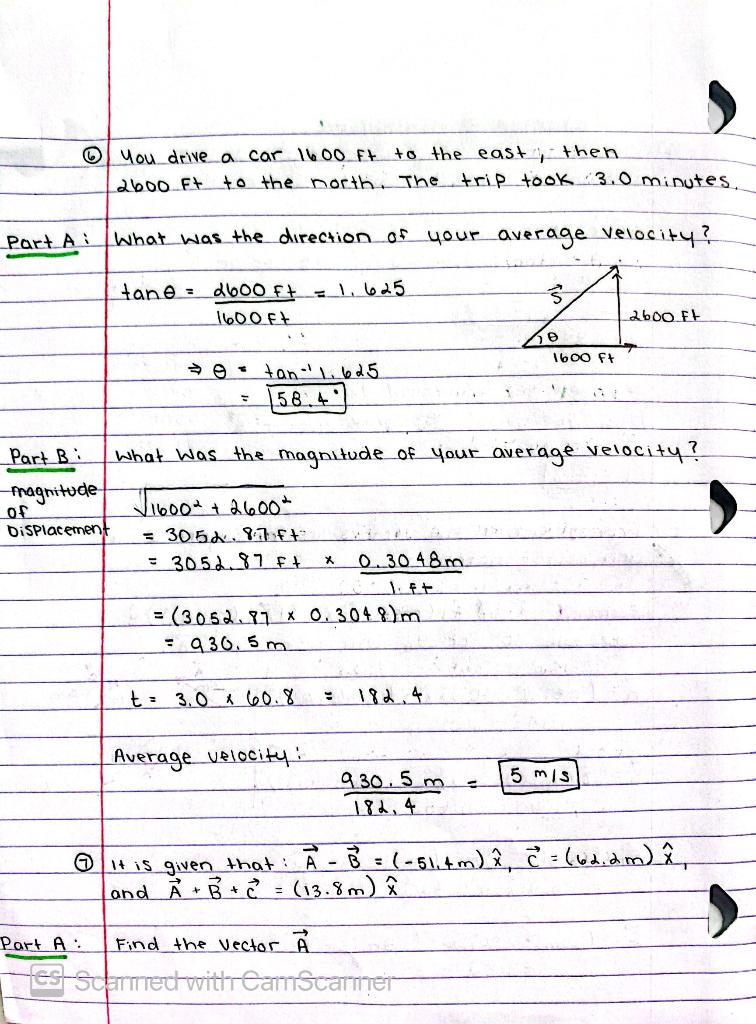 ⑥ You drive a car 1600 Ft to the east, then
2600 Ft to the north. The trip took 3.0 minutes.
Part A: What was the direction of your average velocity?
tanθ = 2600 Ft = 1.625
1600 Ft
⇒ θ = tan⁻¹ 1.625
= 58.4°
S⃗
θ
2600 Ft
1600 Ft
Part B: What was the magnitude of your average velocity?
magnitude
of
Displacement
√1600² + 2600²
= 3052.87 Ft
= 3052.87 Ft × 0.3048m
1. Ft
= (3052.87 × 0.3048)m
= 930.5 m
t = 3.0 × 60.8 = 182.4
Average velocity:
930.5 m = 5 m/s
182.4
⑦ It is given that: A⃗ - B⃗ = (-51.4m) x̂, C⃗ = (62.2m) x̂,
and A⃗ + B⃗ + C⃗ = (13.8m) x̂
Part A: Find the vector A⃗
CS Scanned with CamScanner